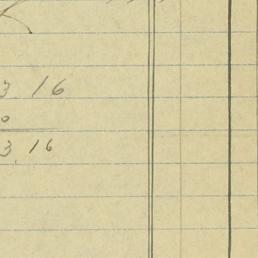 3 16
0
3 16